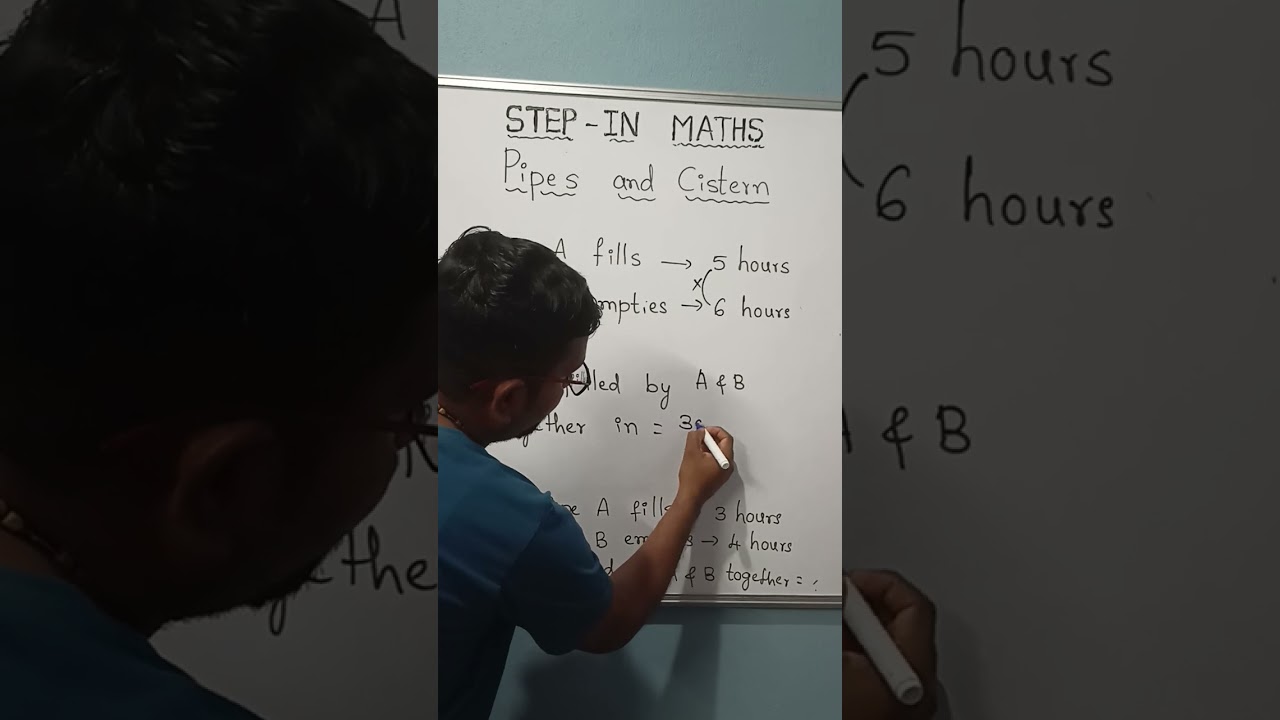 STEP-IN MATHS
Pipes and Cistern
A fills → 5 hours
mpties → 6 hours
x
lled by A & B
gether in = 3
A fills 3 hours
B em s → 4 hours
& B together = ?
5 hours
6 hours
& B